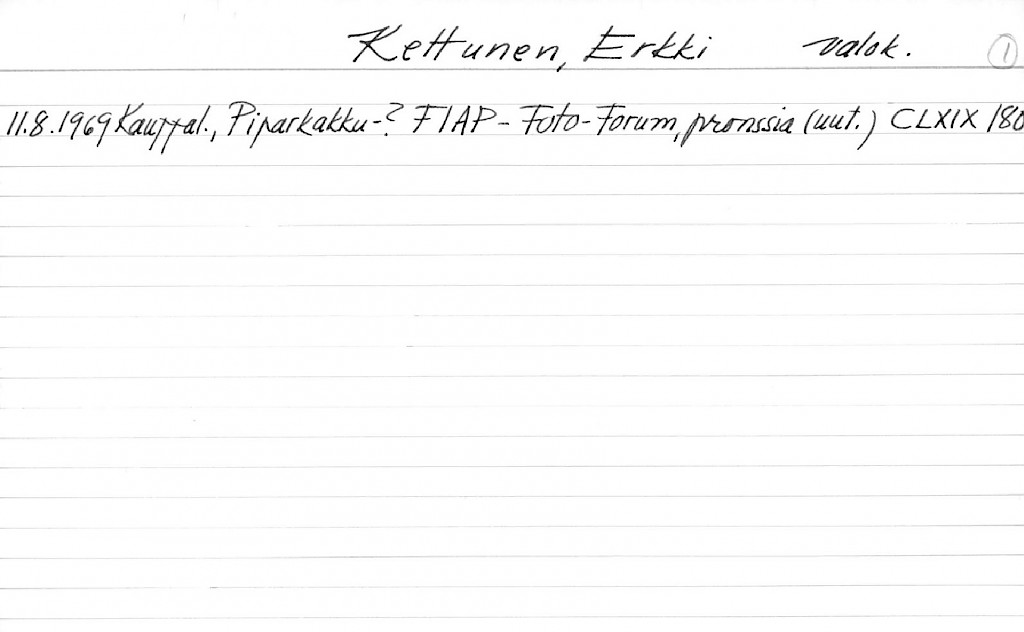 Kettunen, Erkki valok. 1
11.8.1969 Kauppal., Piparkakku-? FIAP-Foto-Forum, pronssia (uut.) CLXIX /80